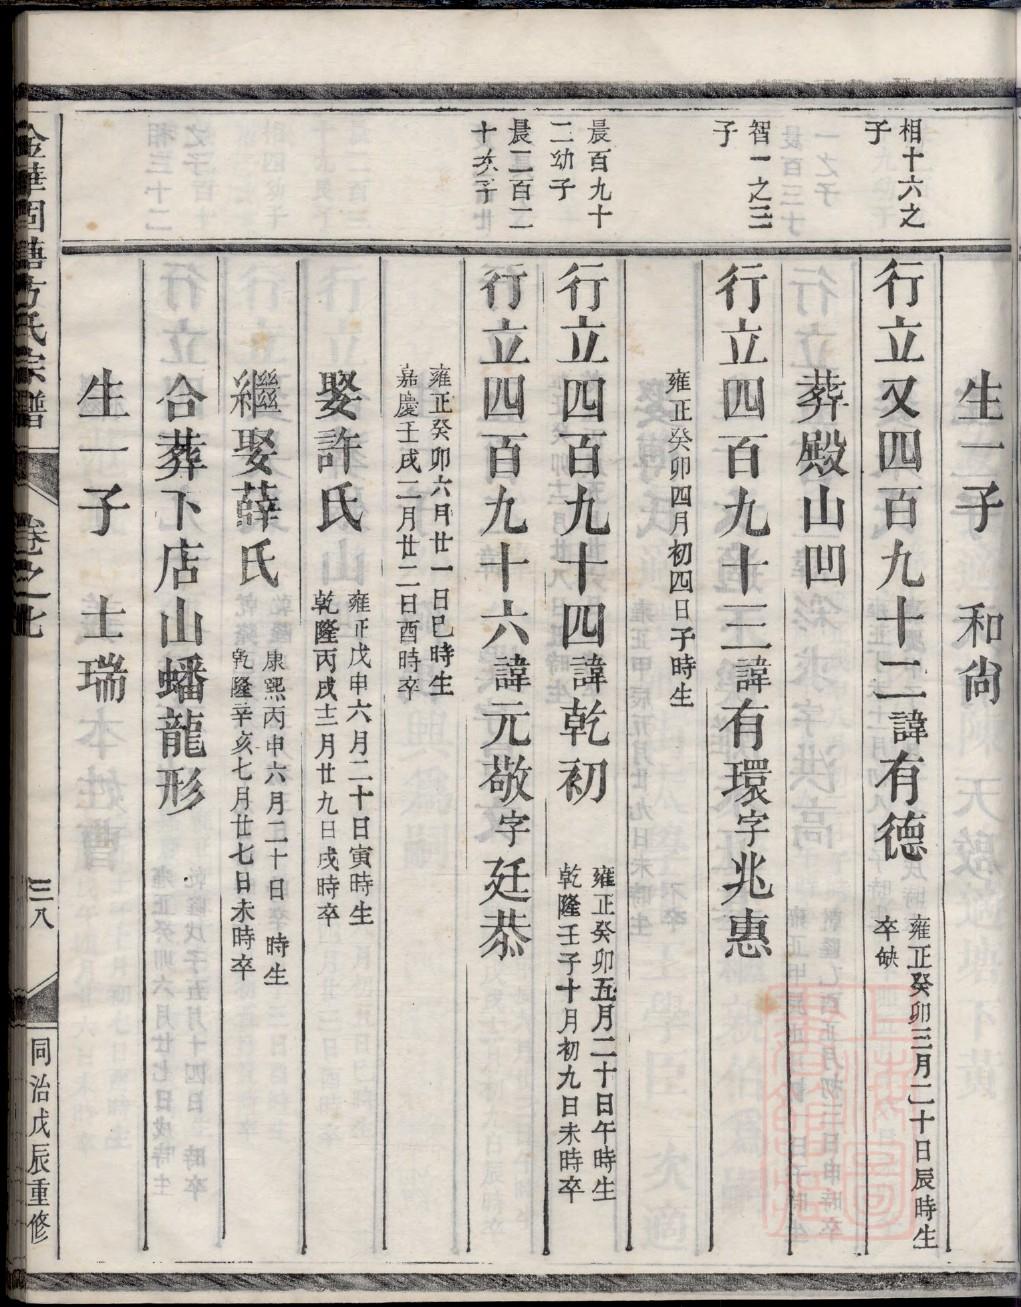 生一子　和尙
相十六之
子
行立又四百九十二諱有德
雍正癸卯三月二十日辰時生
卒缺
葬殿山凹
智一之三
子
行立四百九十三諱有環字兆惠
雍正癸卯四月初四日子時生
晨百九十
二幼子
行立四百九十四諱乾初
雍正癸卯五月二十日午時生
乾隆壬子十月初九日未時卒
晨二百二
十次子
行立四百九十六諱元敬字廷恭
雍正癸卯六月廿一日巳時生
嘉慶壬戌二月廿二日酉時卒
娶許氏
雍正戊申六月二十日寅時生
乾隆丙戌十二月廿九日戌時卒
繼娶薛氏
康熙丙申六月二十日卒時生
乾隆辛亥七月廿七日未時卒
合葬下店山蟠龍形
生一子　士瑞
方氏宗譜
卷之七
三八
同治戊辰重修